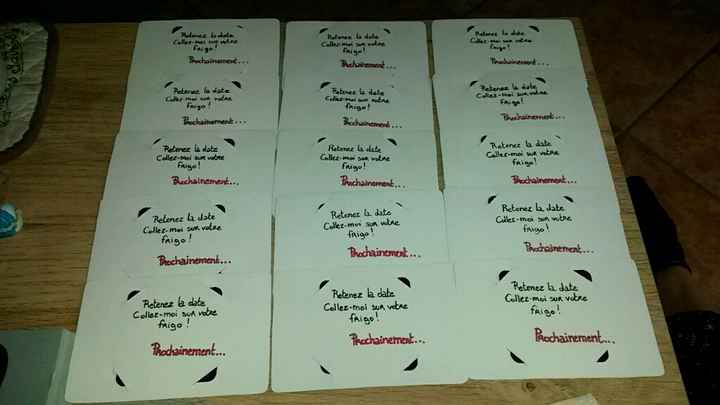 Retenez la date
Collez-moi sur votre
frigo !
Prochainement...
Retenez la date
Collez-moi sur votre
frigo !
Prochainement...
Retenez la date
Collez-moi sur votre
frigo !
Prochainement...
Retenez la date
Collez-moi sur votre
frigo !
Prochainement...
Retenez la date
Collez-moi sur votre
frigo !
Prochainement...
Retenez la date
Collez-moi sur votre
frigo !
Prochainement...
Retenez la date
Collez-moi sur votre
frigo !
Prochainement...
Retenez la date
Collez-moi sur votre
frigo !
Prochainement...
Retenez la date
Collez-moi sur votre
frigo !
Prochainement...
Retenez la date
Collez-moi sur votre
frigo !
Prochainement...
Retenez la date
Collez-moi sur votre
frigo !
Prochainement...
Retenez la date
Collez-moi sur votre
frigo !
Prochainement...
Retenez la date
Collez-moi sur votre
frigo !
Prochainement...
Retenez la date
Collez-moi sur votre
frigo !
Prochainement...
Retenez la date
Collez-moi sur votre
frigo !
Prochainement...